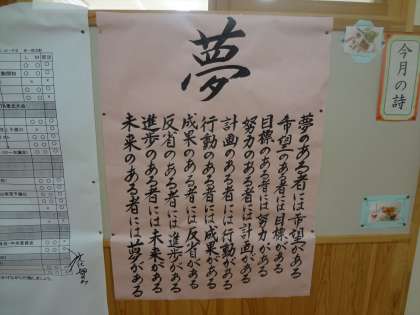 夢
夢のある者には希望がある
希望のある者には目標がある
目標のある者には努力がある
努力のある者には計画がある
計画のある者には行動がある
行動のある者には成果がある
成果のある者には反省がある
反省のある者には進歩がある
進歩のある者には未来がある
未来のある者には夢がある
今月の詩